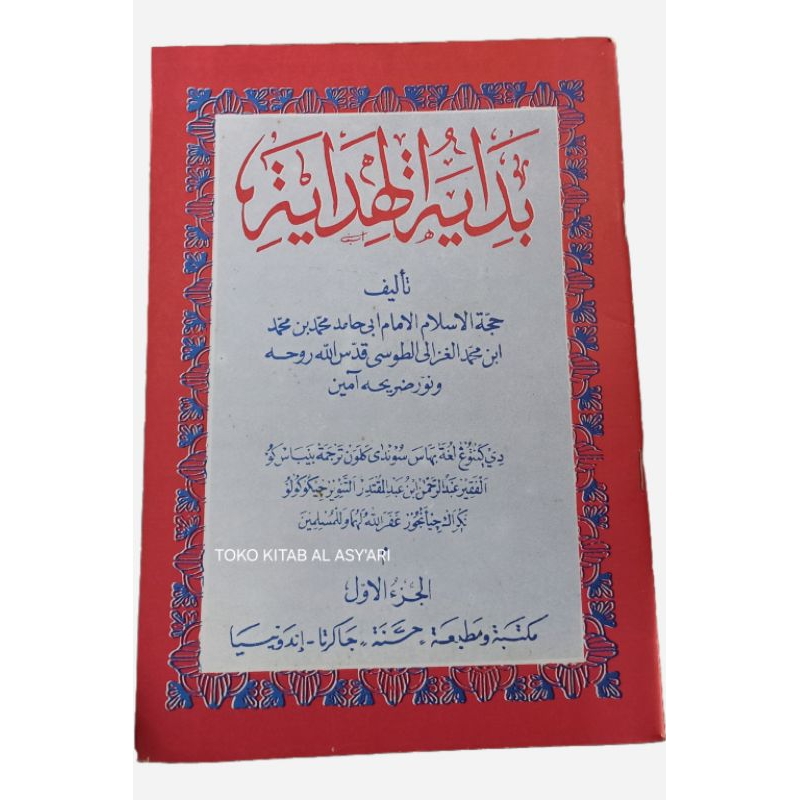 بَدَايَةُ الهِدَايَةِ
تأليف
حجة الاسلام الامام ابى حامد محمد بن محمد
ابن محمد الغزالى الطوسى قدس الله روحه
ونور ضريحه آمين
لغة بهاس سوندى كلون ترجمة بيباس
الفقير عبد الرحمن ابن عبد القادر
غفر الله لهما وللمسلمين
TOKO KITAB AL ASY'ARI
الجزء الاول
مكتبة ومطبعة «حسنة» جاكرتا - إندونيسيا